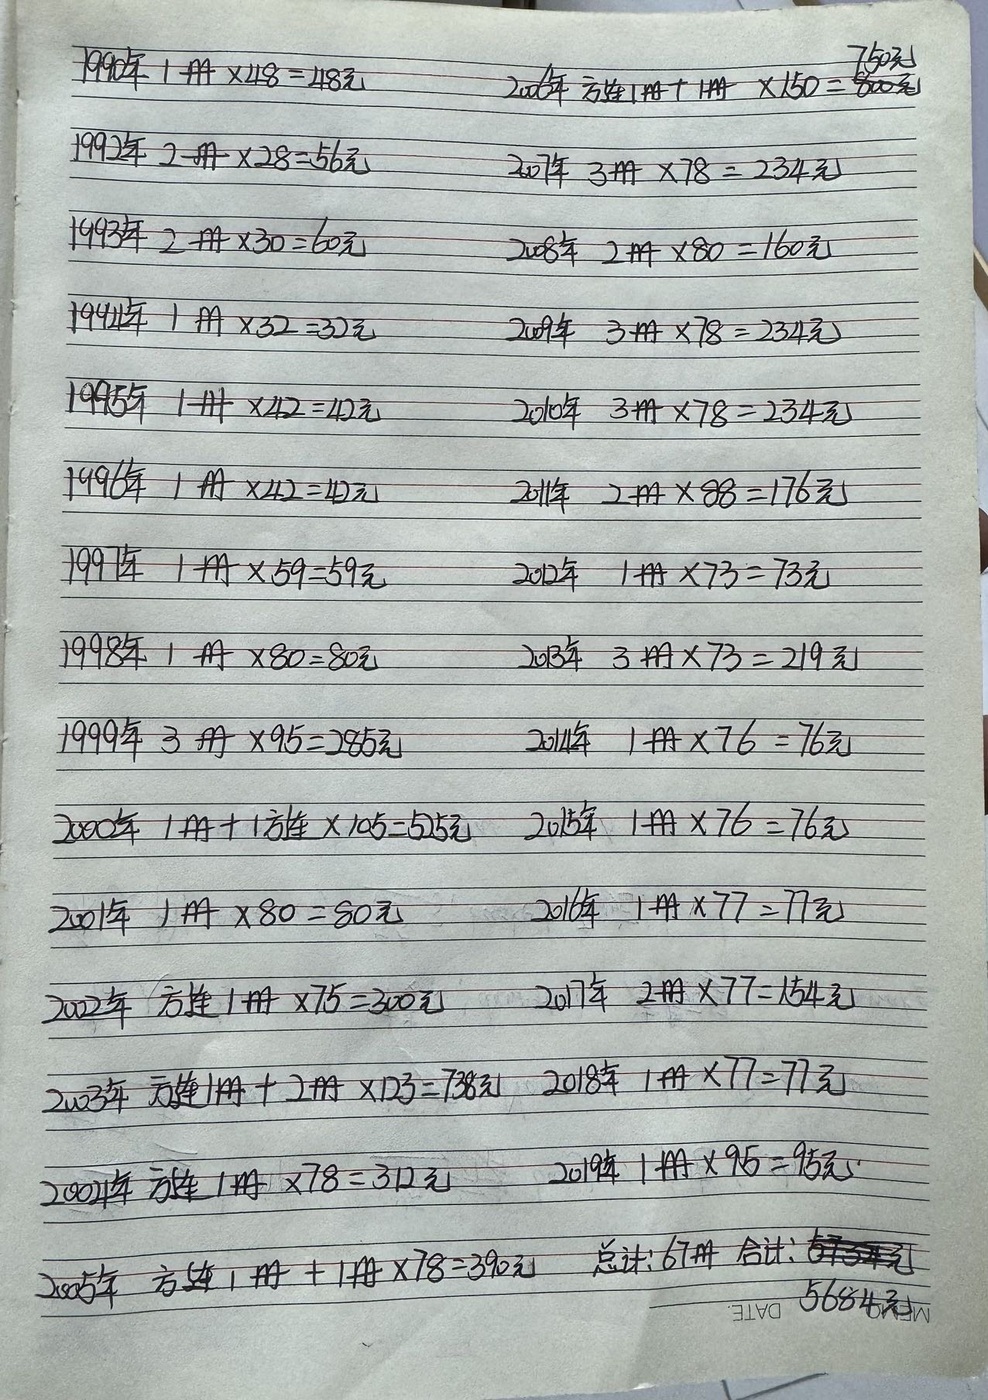 1990年 1册 ×48=48元
1992年 2册 ×28=56元
1993年 2册 ×30=60元
1994年 1册 ×32=32元
1995年 1册 ×42=42元
1996年 1册 ×42=42元
1997年 1册 ×59=59元
1998年 1册 ×80=80元
1999年 3册 ×95=285元
2000年 1册+1方连 ×105=525元
2001年 1册 ×80=80元
2002年 方连1册 ×75=300元
2003年 方连1册+2册 ×123=738元
2004年 方连1册 ×78=312元
2005年 方连1册+1册×78=390元
750元
2006年 方连1册+1册 ×150=800元
2007年 3册 ×78=234元
2008年 2册 ×80=160元
2009年 3册 ×78=234元
2010年 3册 ×78=234元
2011年 2册 ×88=176元
2012年 1册 ×73=73元
2013年 3册 ×73=219元
2014年 1册 ×76=76元
2015年 1册 ×76=76元
2016年 1册 ×77=77元
2017年 2册 ×77=154元
2018年 1册 ×77=77元
2019年 1册 ×95=95元
总计:67册 合计:5734元
5684元
MEMO NO. DATE.